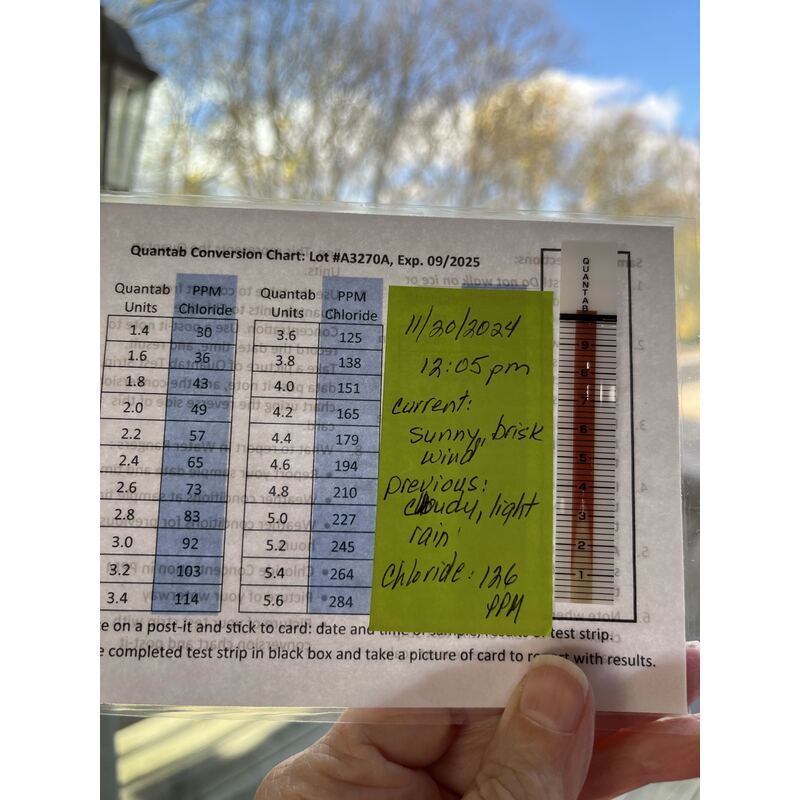 Quantab Conversion Chart: Lot #A3270A, Exp. 09/2025
Quantab Units PPM Chloride
1.4 30
1.6 36
1.8 43
2.0 49
2.2 57
2.4 65
2.6 73
2.8 83
3.0 92
3.2 103
3.4 114
Quantab Units PPM Chloride
3.6 125
3.8 138
4.0 151
4.2 165
4.4 179
4.6 194
4.8 210
5.0 227
5.2 245
5.4 264
5.6 284
11/20/2024
12:05pm
current:
sunny, brisk
wind
previous:
cloudy, light
rain
Chloride: 126
PPM
QUANTAB
9
8
7
6
5
4
3
2
1
e on a post-it and stick to card: date and time of sample, results of test strip.
e completed test strip in black box and take a picture of card to report with results.